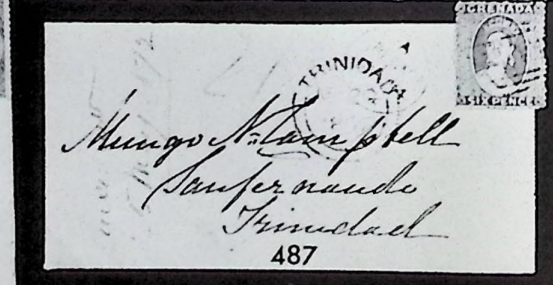 GRENADA
SIX PENCE
TRINIDAD
Mungo N. Campbell
Sanfernando
Trinidad
487